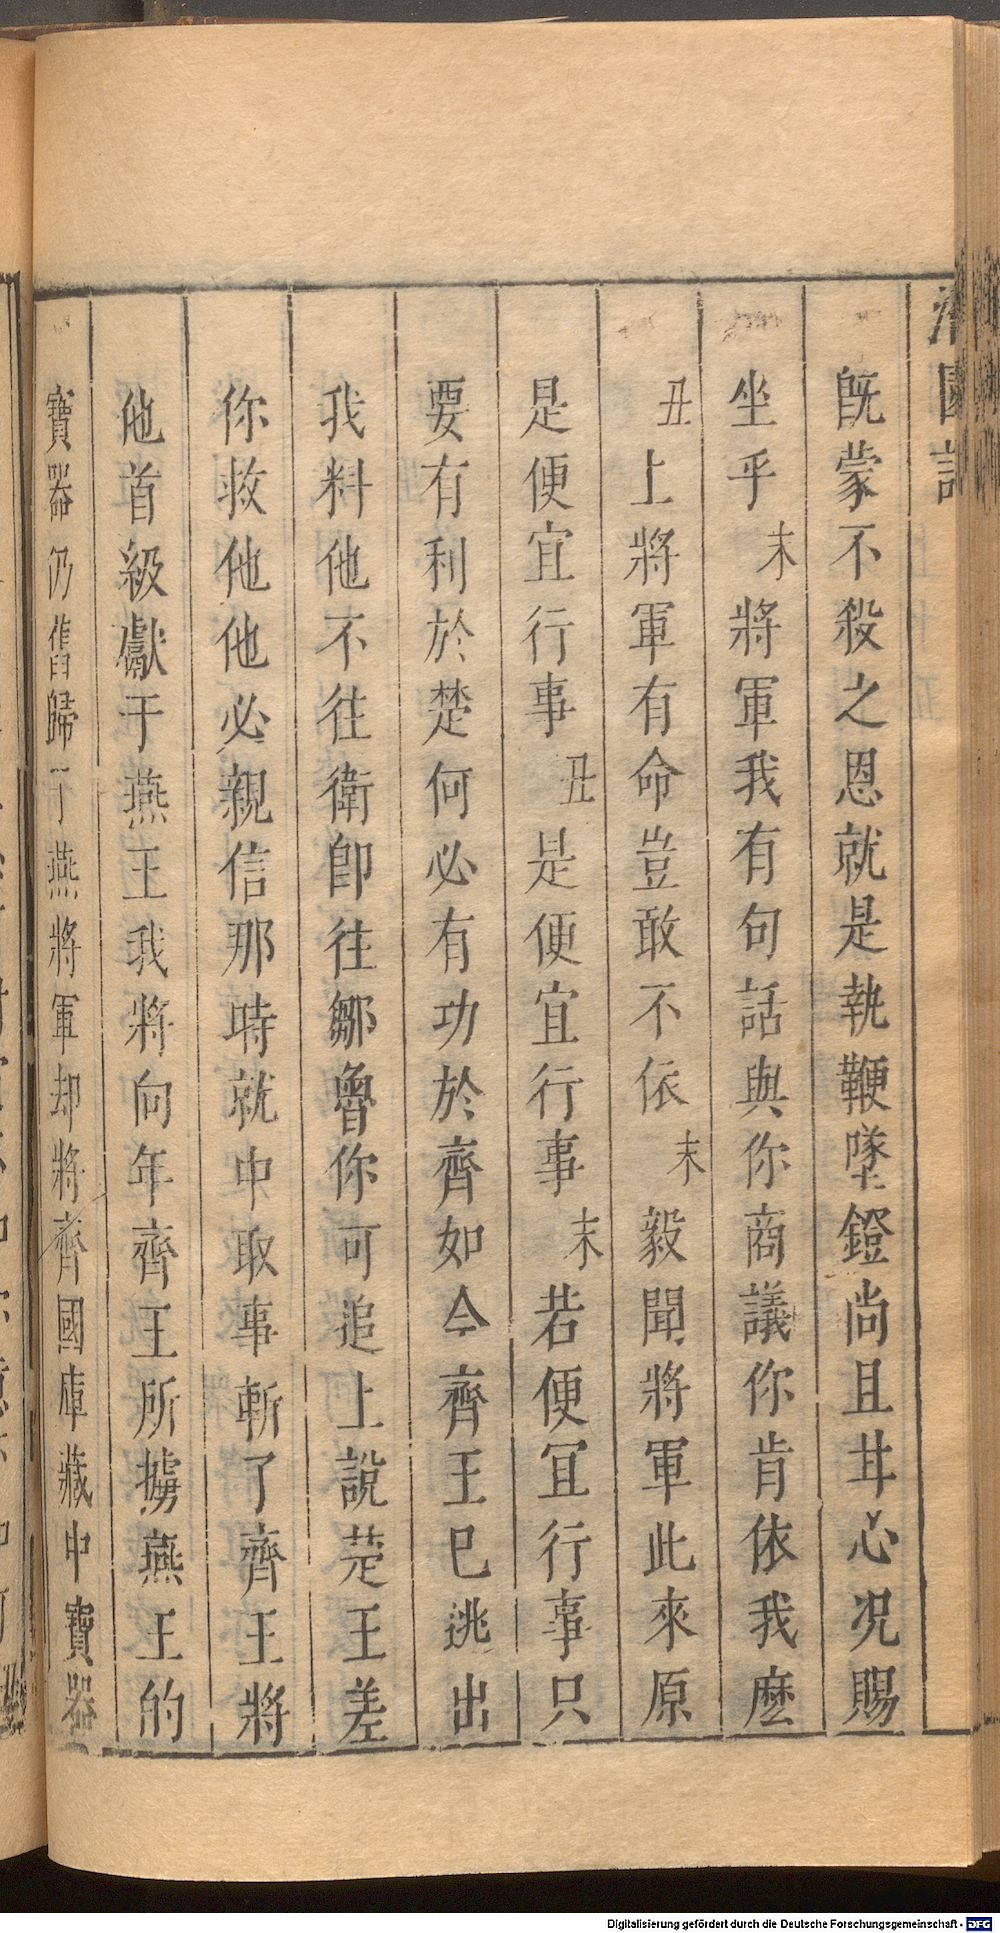 國記
既蒙不殺之恩就是執鞭墜鐙尚且甘心况賜
坐乎末將軍我有句話與你商議你肯依我麽
丑上將軍有命豈敢不依末毅聞將軍此來原
是便宜行事丑是便宜行事末若便冝行事只
要有利於楚何必有功於齊如今齊王巳逃出
我料他不往衛卽往鄒魯你可追上說楚王差
你救他他必親信那時就中取事斬了齊王將
他首級獻于燕王我將向年齊王所擄燕王的
寶器仍舊歸了燕將軍却將齊國庫藏中寶器
Digitalisierung gefördert durch die Deutsche Forschungsgemeinschaft - DFG